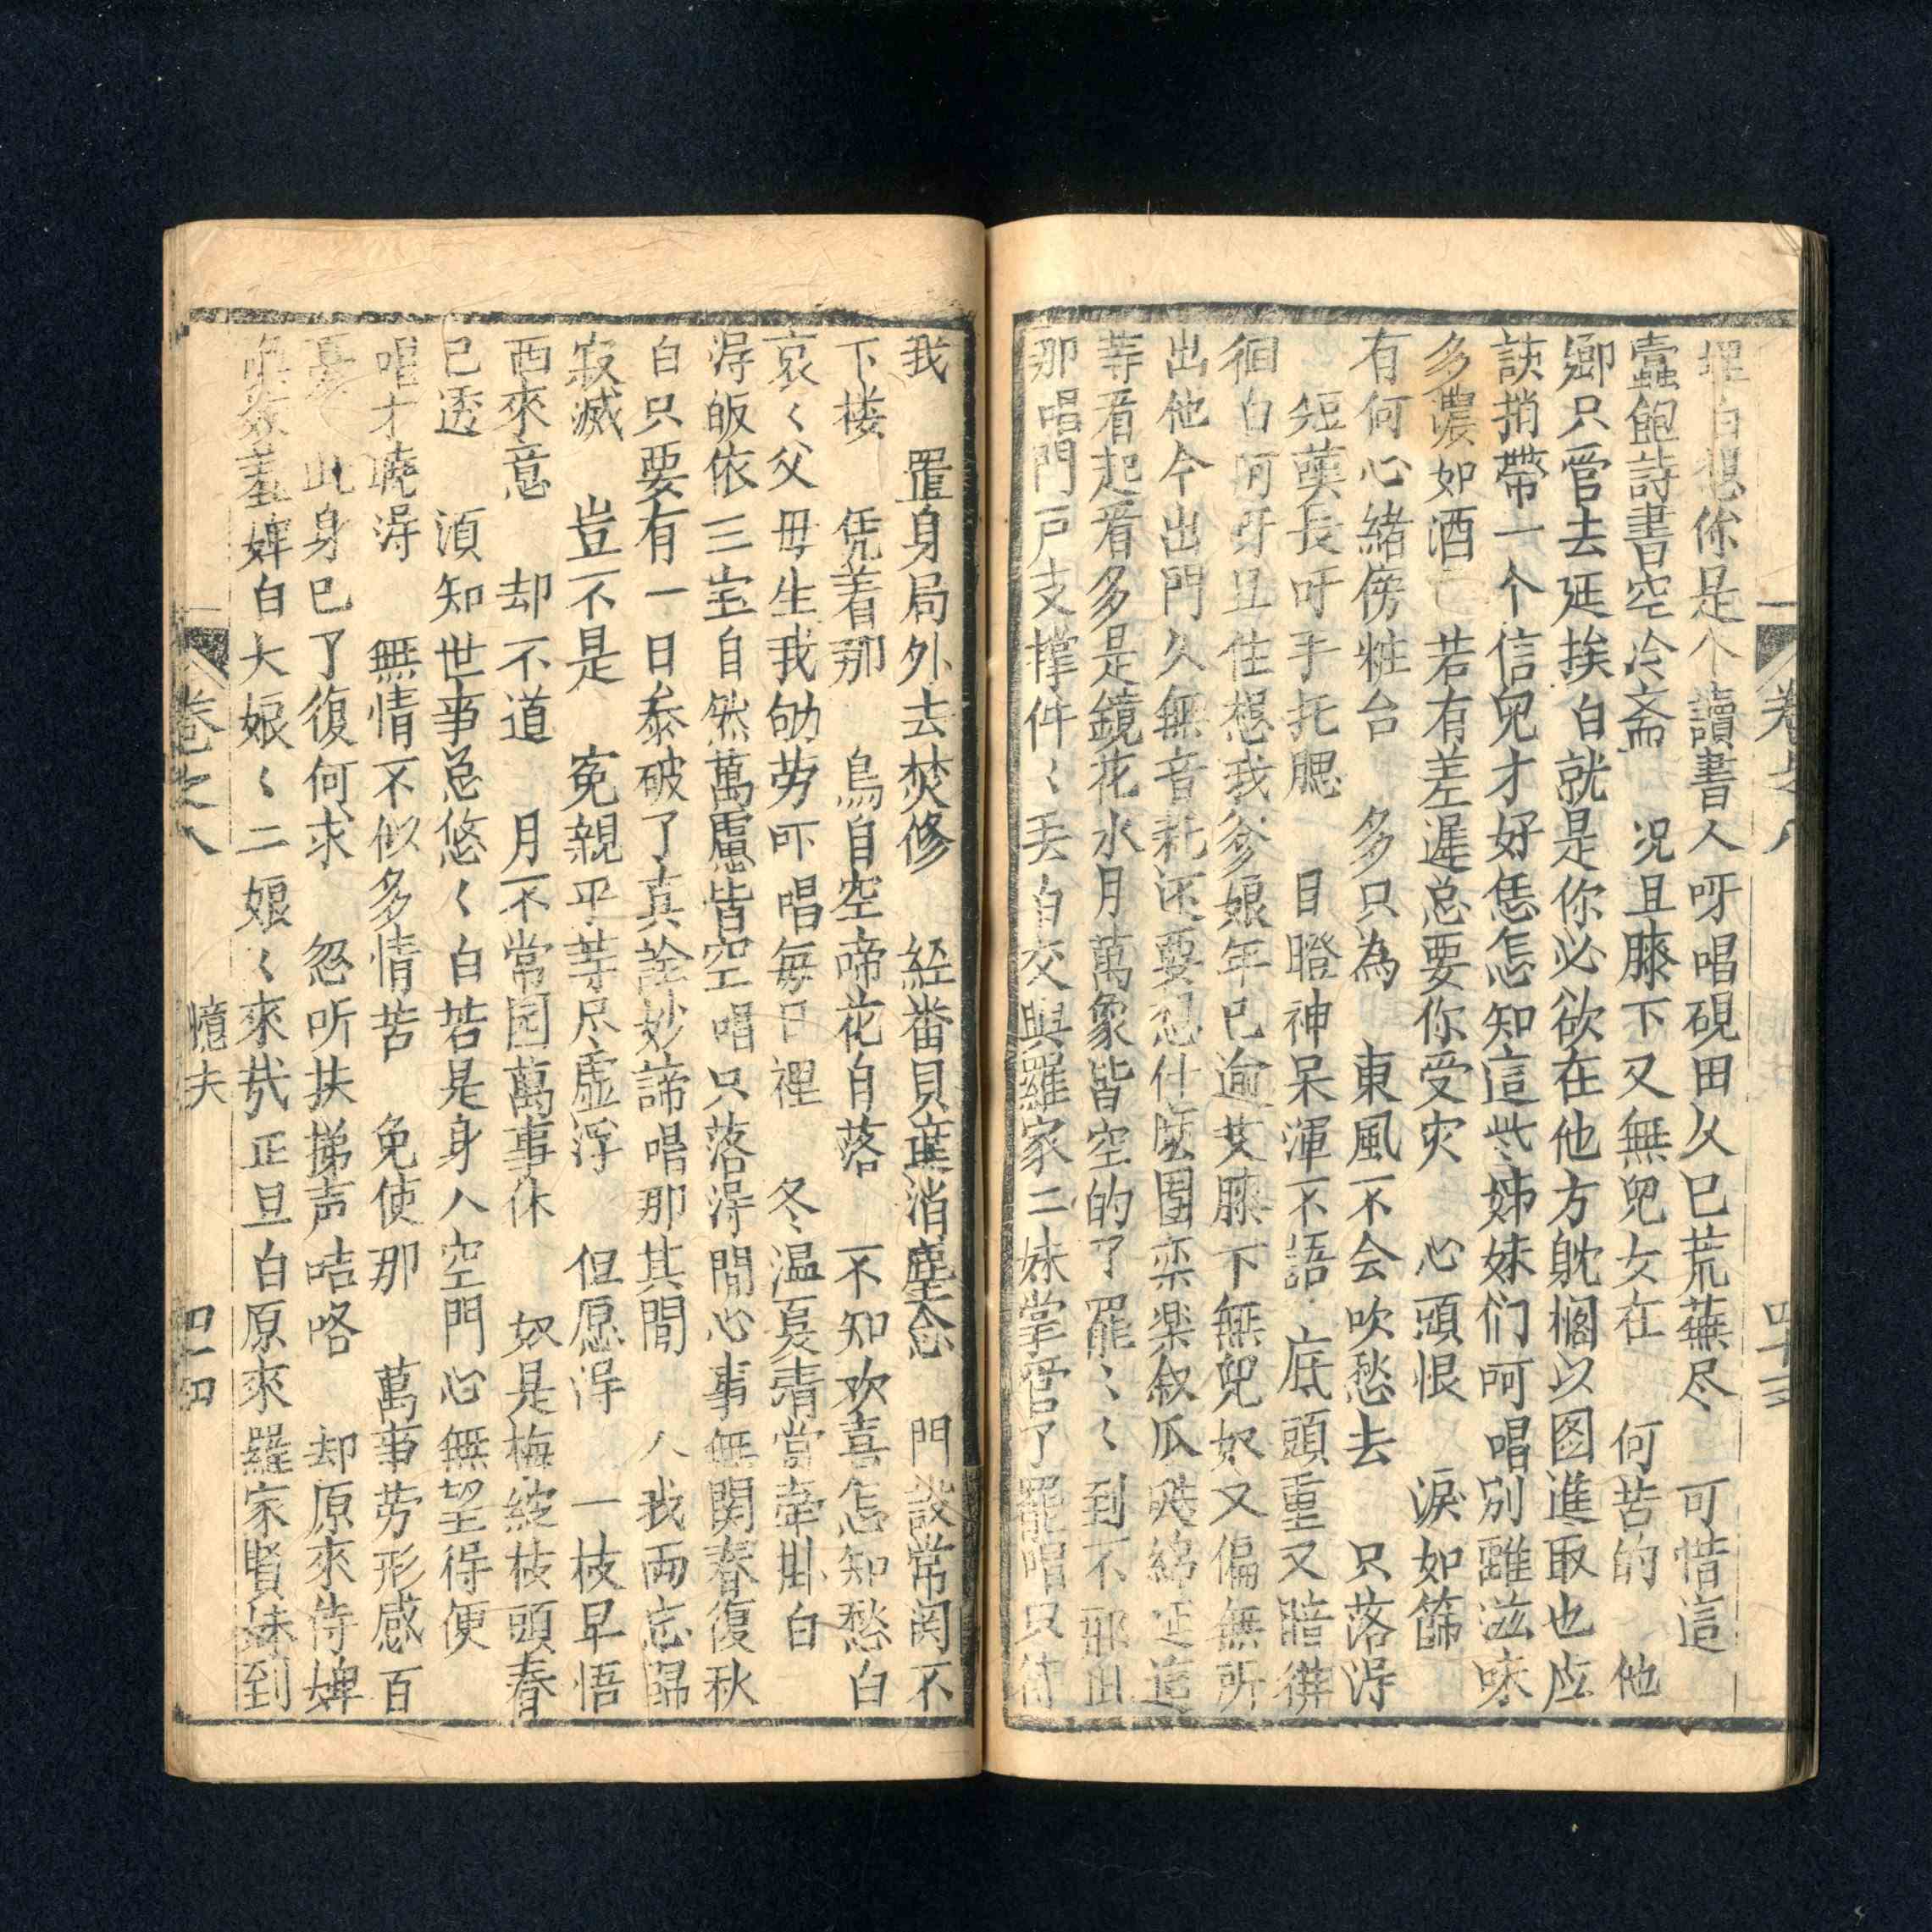 卷之八　四十三
埋白想你是个讀書人呀唱硯田久已荒蕪尽　可惜這
蠹飽詩書空冷斋　况且膝下又無兒女在　何苦的　他
鄉只管去延挨白就是你必欲在他方躭擱以图進取也应
該捎帶一个信兒才好恁怎知這些姊妹们呵唱別離滋味
多濃如酒　若有差遲总要你受灾　心頭恨　淚如篩
有何心緒傍粧台　多只為　東風不会吹愁去　只落淂
短嘆長吁手托腮　目瞪神呆渾不語　底頭重又暗徘
徊白呵呀且住想我爹娘年已逾艾膝下無兒奴又偏無所
出他今出門久無音耗还要想什麽團栾楽叙瓜瓞綿延這
等看起看多是鏡花水月萬象皆空的了罷〻〻到不邪此
那唱門戸支撑件〻丟白交與羅家二妹掌官了罷唱只待
我　置身局外去焚修　経番貝葉消塵念　門設常関不
下楼　凭着那　鳥自空啼花自落　不知欢喜怎知愁白
哀〻父母生我劬劳吓唱每日裡　冬温夏清當牽掛白
淂皈依三宝自然萬慮皆空唱只落淂閒心事無関春復秋
白只要有一日叅破了真詮妙諦唱那其間　人我兩忘歸
寂滅　豈不是　寃親平等尽虚浮　但愿淂　一枝早悟
西來意　却不道　月不常园萬事休　奴是梅綻枝頭春
已透　湏知世事总悠〻白若是身人空門心無望得便
唱才曉淂　無情不似多情苦　免使那　萬事劳形感百
憂　此身已了復何求　忽听扶梯声咭咯　却原來侍婢
羞婢白大娘〻二娘〻來哉正旦白原來羅家賢妹到
卷之八　憶夫　四十四